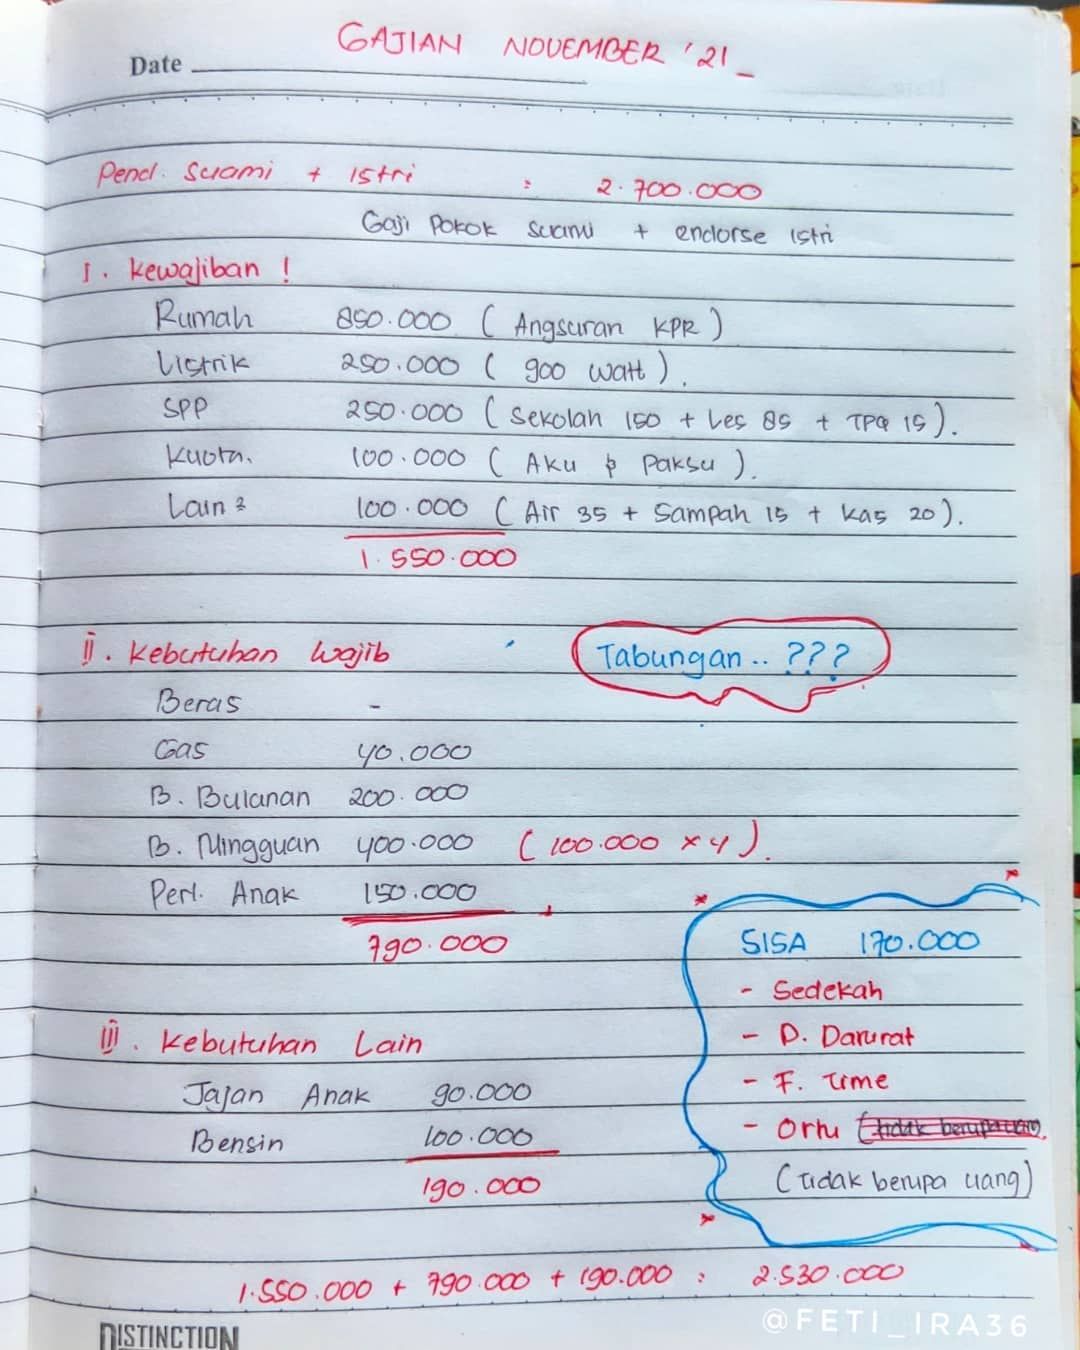 GAJIAN NOVEMBER '21_
Date
Pend. Suami + Istri : 2.700.000
Gaji Pokok Suami + endorse Istri
I. Kewajiban !
Rumah 850.000 ( Angsuran KPR )
Listrik 250.000 ( 900 Watt ).
SPP 250.000 ( Sekolah 150 + Les 85 + TPQ 15 ).
Kuota. 100.000 ( Aku & Paksu ).
Lain2 100.000 ( Air 35 + Sampah 15 + Kas 20 ).
1.550.000
II. Kebutuhan Wajib
Tabungan.. ???
Beras -
Gas 40.000
B. Bulanan 200.000
B. Mingguan 400.000 ( 100.000 x 4 ).
Perl. Anak 150.000
790.000
SISA 170.000
- Sedekah
- D. Darurat
- F. Time
- Ortu (tidak berupa uang).
(tidak berupa uang)
III. Kebutuhan Lain
Jajan Anak 90.000
Bensin 100.000
190.000
1.550.000 + 790.000 + 190.000 : 2.530.000
@FETI_IRA36
DISTINCTION